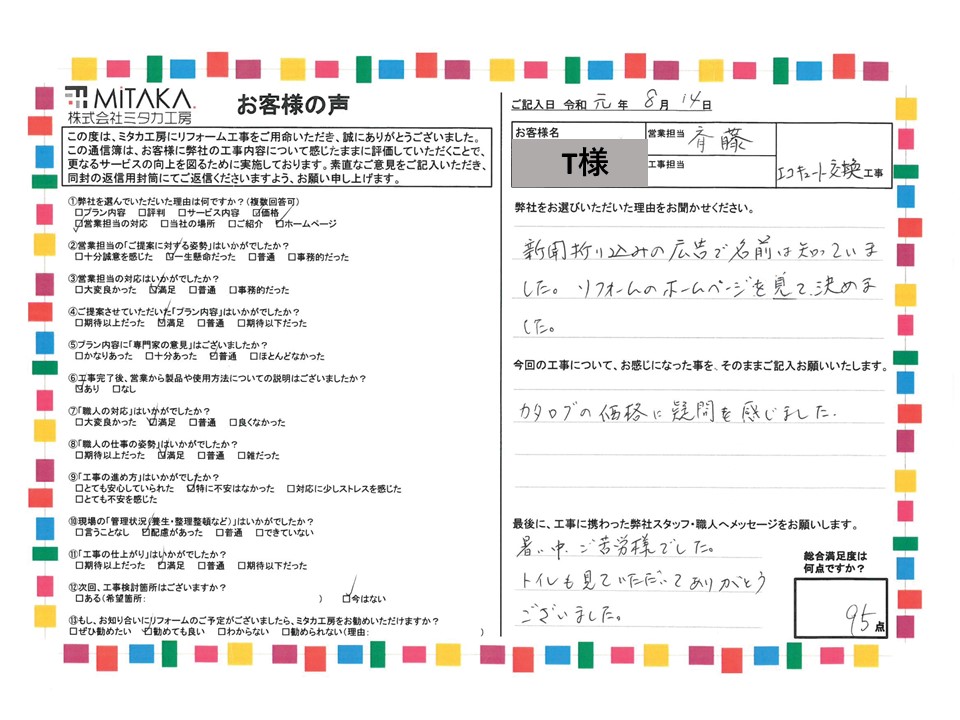 MiTAKA.
株式会社ミタカ工房
お客様の声
この度は、ミタカ工房にリフォーム工事をご用命いただき、誠にありがとうございました。
この通信簿は、お客様に弊社の工事内容について感じたままに評価していただくことで、
更なるサービスの向上を図るために実施しております。素直なご意見をご記入いただき、
同封の返信用封筒にてご返信くださいますよう、お願い申し上げます。
①弊社を選んでいただいた理由は何ですか?(複数回答可)
□プラン内容 □評判 □サービス内容 ☑価格
☑営業担当の対応 □当社の場所 □ご紹介 ☑ホームページ
②営業担当の「ご提案に対する姿勢」はいかがでしたか?
□十分誠意を感じた ☑一生懸命だった □普通 □事務的だった
③営業担当の対応はいかがでしたか?
□大変良かった ☑満足 □普通 □事務的だった
④ご提案させていただいた「プラン内容」はいかがでしたか?
□期待以上だった ☑満足 □普通 □期待以下だった
⑤プラン内容に「専門家の意見」はございましたか?
□かなりあった □十分あった ☑普通 □ほとんどなかった
⑥工事完了後、営業から製品や使用方法についての説明はございましたか?
☑あり □なし
⑦「職人の対応」はいかがでしたか?
□大変良かった ☑満足 □普通 □良くなかった
⑧「職人の仕事の姿勢」はいかがでしたか?
□期待以上だった ☑満足 □普通 □雑だった
⑨「工事の進め方」はいかがでしたか?
□とても安心していられた ☑特に不安はなかった □対応に少しストレスを感じた
□とても不安を感じた
⑩現場の「管理状況(養生・整理整頓など)」はいかがでしたか?
□言うことなし ☑配慮があった □普通 □できていない
⑪「工事の仕上がり」はいかがでしたか?
□期待以上だった ☑満足 □普通 □期待以下だった
⑫次回、工事検討箇所はございますか?
□ある(希望箇所: ) ☑今はない
⑬もし、お知り合いにリフォームのご予定がございましたら、ミタカ工房をお勧めいただけますか?
□ぜひ勧めたい ☑勧めても良い □わからない □勧められない(理由: )
ご記入日 令和 元 年 8 月 14 日
お客様名
T様
営業担当 斉藤
工事担当
エコキュート交換工事
弊社をお選びいただいた理由をお聞かせください。
新聞折り込みの広告で名前は知っていま
した。リフォームのホームページを見て、決めま
した。
今回の工事について、お感じになった事を、そのままご記入お願いいたします。
カタログの価格に疑問を感じました.
最後に、工事に携わった弊社スタッフ・職人へメッセージをお願いします。
暑い中、ご苦労様でした。
トイレも見ていただいてありがとう
ございました。
総合満足度は
何点ですか?
95点